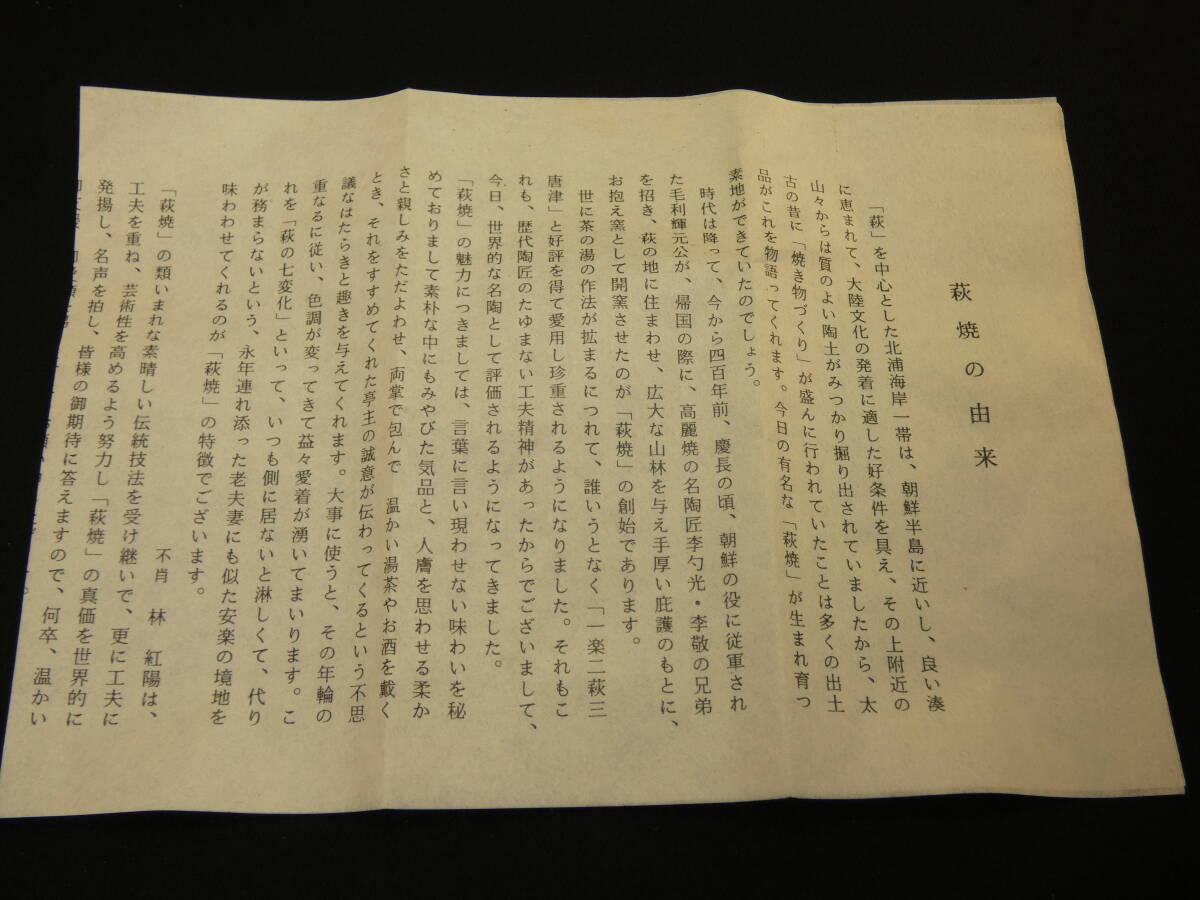 萩焼の由来
「萩」を中心とした北浦海岸一帯は、朝鮮半島に近いし、良い湊
に恵まれて、大陸文化の発着に適した好条件を具え、その上附近の
山々からは質のよい陶土がみつかり掘り出されていましたから、太
古の昔に「焼き物づくり」が盛んに行われていたことは多くの出土
品がこれを物語ってくれます。今日の有名な「萩焼」が生まれ育つ
素地ができていたのでしょう。
時代は降って、今から四百年前、慶長の頃、朝鮮の役に従軍され
た毛利輝元公が、帰国の際に、高麗焼の名陶匠李勺光・李敬の兄弟
を招き、萩の地に住まわせ、広大な山林を与え手厚い庇護のもとに、
お抱え窯として開窯させたのが「萩焼」の創始であります。
世に茶の湯の作法が拡まるにつれて、誰いうとなく「一楽二萩三
唐津」と好評を得て愛用し珍重されるようになりました。それもこ
れも、歴代陶匠のたゆまない工夫精神があったからでございまして、
今日、世界的な名陶として評価されるようになってきました。
「萩焼」の魅力につきましては、言葉に言い現わせない味わいを秘
めておりまして素朴な中にもみやびた気品と、人膚を思わせる柔か
さと親しみをただよわせ、両掌で包んで　温かい湯茶やお酒を戴く
とき、それをすすめてくれた亭主の誠意が伝わってくるという不思
議なはたらきと趣きを与えてくれます。大事に使うと、その年輪の
重なるに従い、色調が変ってきて益々愛着が湧いてまいります。こ
れを「萩の七変化」といって、いつも側に居ないと淋しくて、代り
が務まらないという、永年連れ添った老夫妻にも似た安楽の境地を
味わわせてくれるのが「萩焼」の特徴でございます。
不肖　林　紅陽は、
「萩焼」の類いまれな素晴しい伝統技法を受け継いで、更に工夫に
工夫を重ね、芸術性を高めるよう努力し「萩焼」の真価を世界的に
発揚し、名声を拍し、皆様の御期待に答えますので、何卒、温かい